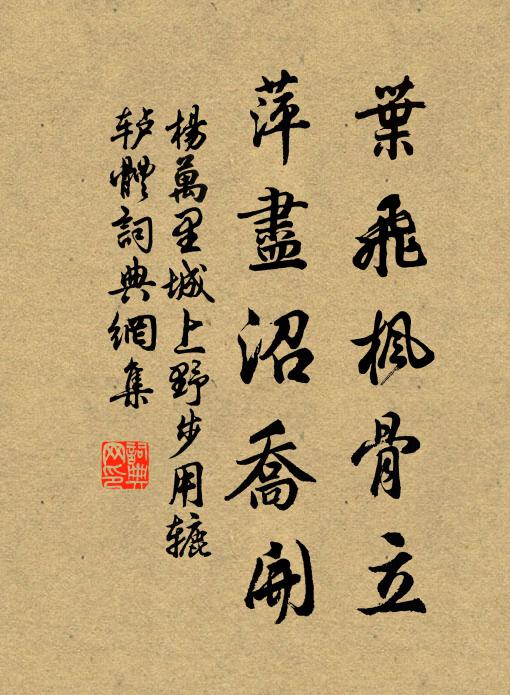 葉飛楓骨立
萍盡沼喬開
楊萬里城上野步用辘
轳體詞典網集
詞典
网印